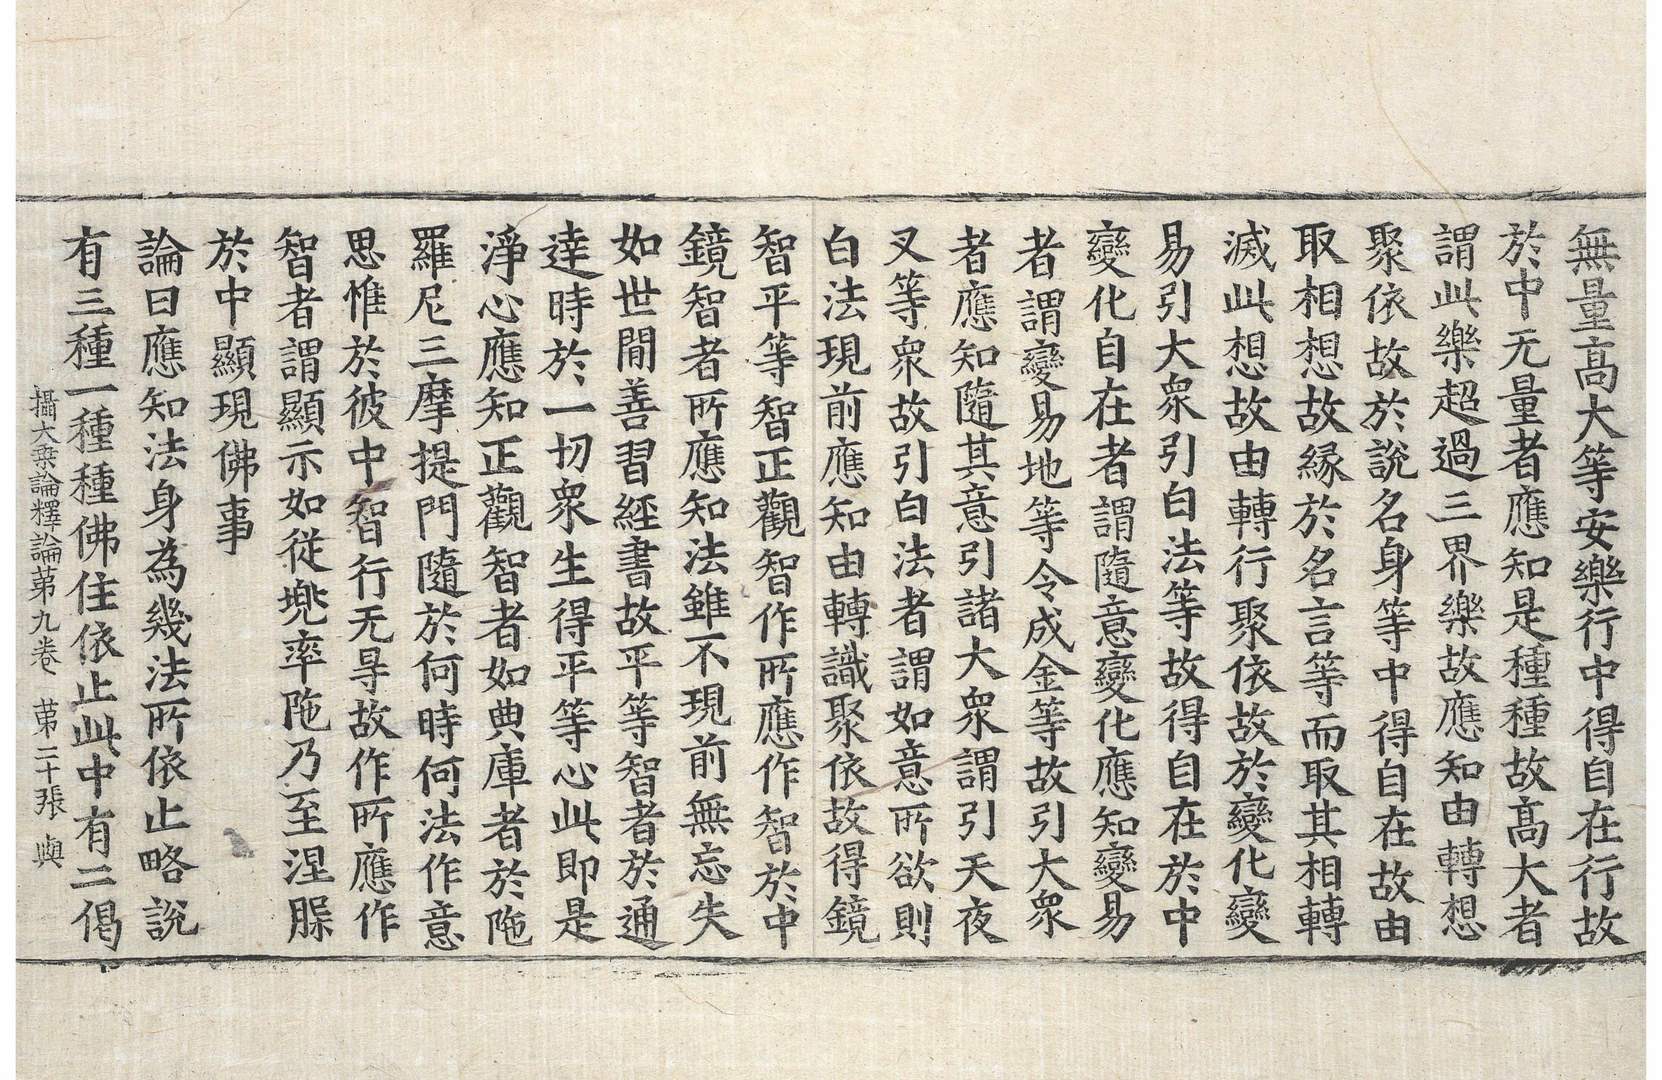 無量髙大等安樂行中得自在行故
於中无量者應知是種種故髙大者
謂此樂超過三界樂故應知由轉想
聚依故於說名身等中得自在故由
取相想故縁於名言等而取其相轉
滅此想故由轉行聚依故於變化變
易引大衆引白法等故得自在於中
變化自在者謂隨意變化應知變易
者謂變易地等令成金等故引大衆
者應知隨其意引諸大衆謂引天夜
叉等衆故引白法者謂如意所欲則
白法現前應知由轉識聚依故得鏡
智平等智正觀智作所應作智於中
鏡智者所應知法雖不現前無忘失
如世閒善習經書故平等智者於通
達時於一切衆生得平等心此即是
淨心應知正觀智者如典庫者於陁
羅尼三摩提門隨於何時何法作意
思惟於彼中智行无㝵故作所應作
智者謂顯示如從兠率陁乃至涅槃
於中顯現佛事
論曰應知法身為幾法所依止略說
有三種一種種佛住依止此中有二偈
攝大乗論釋論苐九卷　苐二十張　與